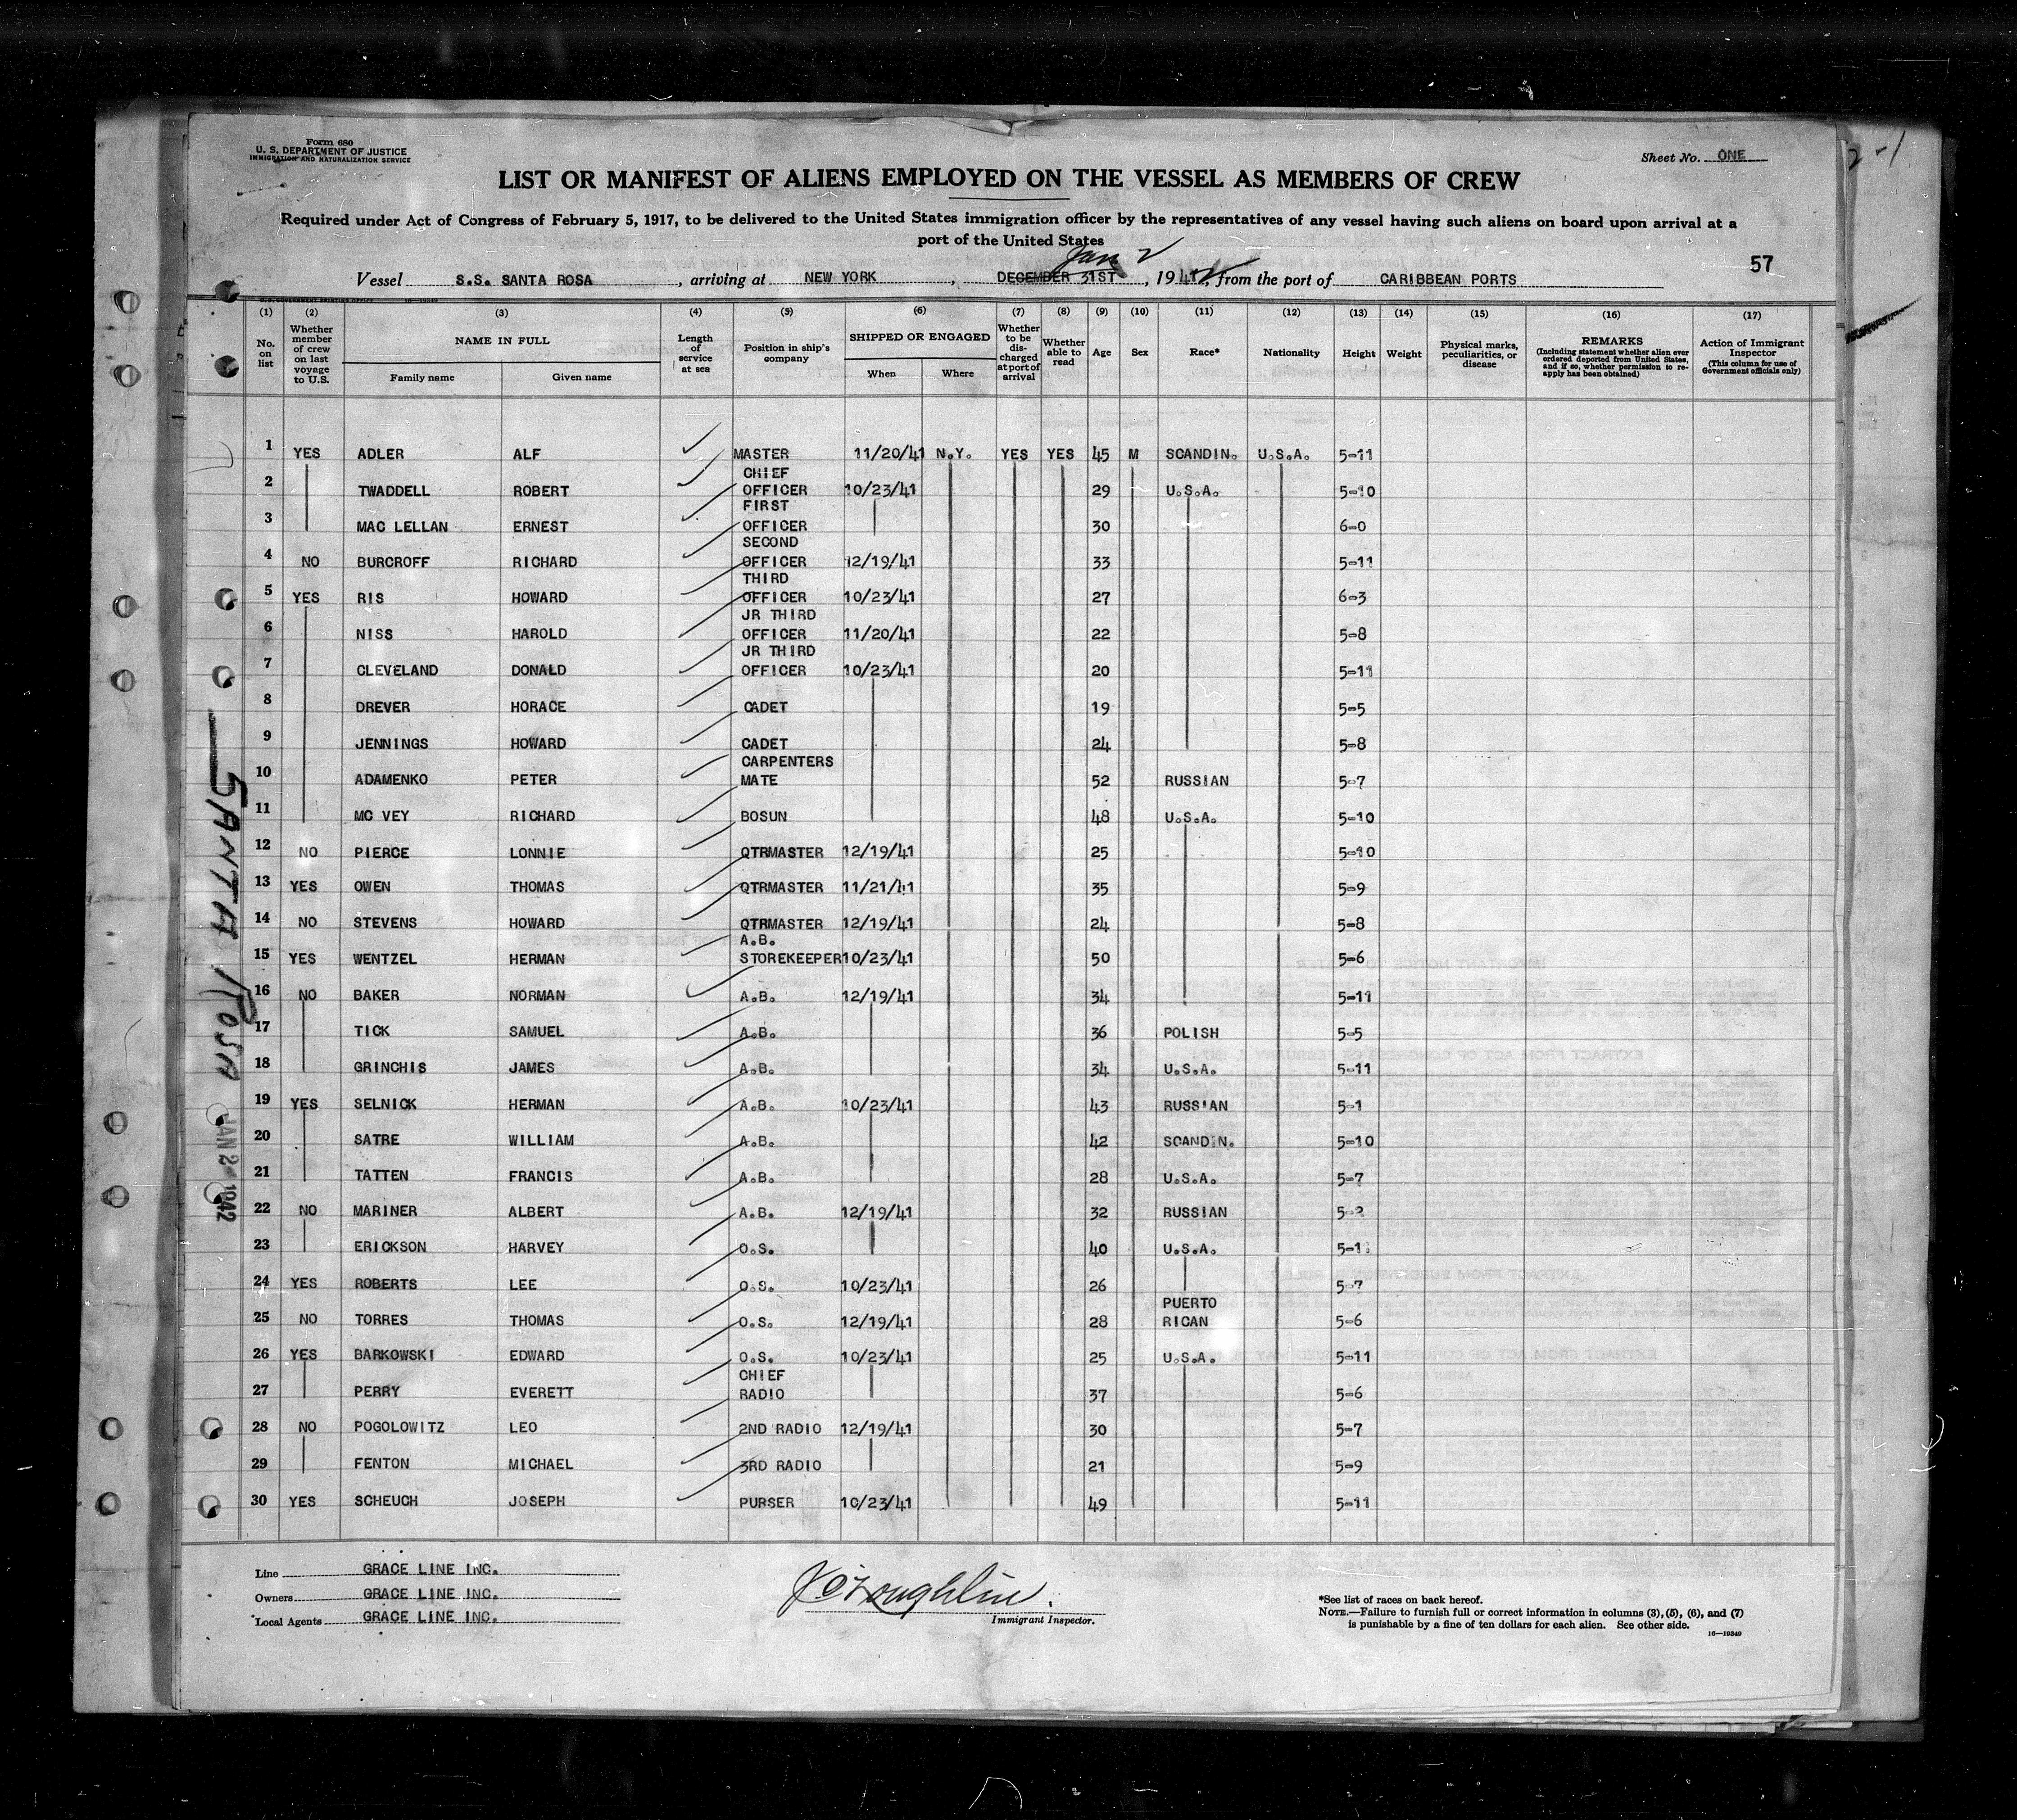 Form 680
U. S. DEPARTMENT OF JUSTICE
IMMIGRATION AND NATURALIZATION SERVICE
Sheet No. ONE
2-1
LIST OR MANIFEST OF ALIENS EMPLOYED ON THE VESSEL AS MEMBERS OF CREW
Required under Act of Congress of February 5, 1917, to be delivered to the United States immigration officer by the representatives of any vessel having such aliens on board upon arrival at a
port of the United States
Jan 2
57
Vessel S.S. SANTA ROSA, arriving at NEW YORK, DECEMBER 31ST, 1942, from the port of CARIBBEAN PORTS
U.S. GOVERNMENT PRINTING OFFICE 16-19349
(1) (2) (3) (4) (5) (6) (7) (8) (9) (10) (11) (12) (13) (14) (15) (16) (17)
No. on list | Whether member of crew on last voyage to U.S. | NAME IN FULL | Family name | Given name | Length of service at sea | Position in ship's company | SHIPPED OR ENGAGED | When | Where | Whether to be discharged at port of arrival | Whether able to read | Age | Sex | Race* | Nationality | Height | Weight | Physical marks, peculiarities, or disease | REMARKS (Including statement whether alien ever ordered deported from United States, and if so, whether permission to re-apply has been obtained) | Action of Immigrant Inspector (This column for use of Government officials only)
1 YES ADLER ALF MASTER 11/20/41 N.Y. YES YES 45 M SCANDIN. U.S.A. 5-11
2 TWADDELL ROBERT CHIEF OFFICER 10/23/41 29 U.S.A. 5-10
3 MAC LELLAN ERNEST FIRST OFFICER 30 6-0
4 NO BURCROFF RICHARD SECOND OFFICER 12/19/41 33 5-11
5 YES RIS HOWARD THIRD OFFICER 10/23/41 27 6-3
6 NISS HAROLD JR THIRD OFFICER 11/20/41 22 5-8
7 CLEVELAND DONALD JR THIRD OFFICER 10/23/41 20 5-11
8 DREVER HORACE CADET 19 5-5
9 JENNINGS HOWARD CADET 24 5-8
10 ADAMENKO PETER CARPENTERS MATE 52 RUSSIAN 5-7
11 MC VEY RICHARD BOSUN 48 U.S.A. 5-10
12 NO PIERCE LONNIE QTRMASTER 12/19/41 25 5-10
13 YES OWEN THOMAS QTRMASTER 11/21/41 35 5-9
14 NO STEVENS HOWARD QTRMASTER 12/19/41 24 5-8
15 YES WENTZEL HERMAN A.B. STOREKEEPER 10/23/41 50 5-6
16 NO BAKER NORMAN A.B. 12/19/41 34 5-11
17 TICK SAMUEL A.B. 36 POLISH 5-5
18 GRINCHIS JAMES A.B. 34 U.S.A. 5-11
19 YES SELNICK HERMAN A.B. 10/23/41 43 RUSSIAN 5-1
20 SATRE WILLIAM A.B. 42 SCANDIN. 5-10
21 TATTEN FRANCIS A.B. 28 U.S.A. 5-7
22 NO MARINER ALBERT A.B. 12/19/41 32 RUSSIAN
23 ERICKSON HARVEY O.S. 40 U.S.A.
24 YES ROBERTS LEE O.S. 10/23/41 26 5-7
25 NO TORRES THOMAS O.S. 12/19/41 28 PUERTO RICAN 5-6
26 YES BARKOWSKI EDWARD O.S. 10/23/41 25 U.S.A. 5-11
27 PERRY EVERETT CHIEF RADIO 37 5-6
28 NO POGOLOWITZ LEO 2ND RADIO 12/19/41 30 5-7
29 FENTON MICHAEL 3RD RADIO 21 5-9
30 YES SCHEUCH JOSEPH PURSER 10/23/41 49 5-11
SANTA ROSA
JAN 2 1942
Line GRACE LINE INC.
Owners GRACE LINE INC.
Local Agents GRACE LINE INC.
J O'Loughlin
Immigrant Inspector.
*See list of races on back hereof.
NOTE.—Failure to furnish full or correct information in columns (3), (5), (6), and (7)
is punishable by a fine of ten dollars for each alien. See other side.
16-19349